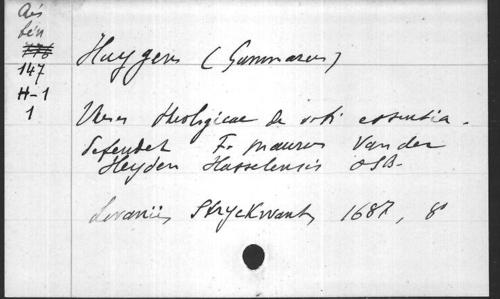 Aës
bén
776
147
H-1
1
Huygens (Gummarus)
Theses theologicae de
defendet F. Maurus Van der
Heyden Hasselensis OSB.
Lovanii Stryckwant, 1687, 8°